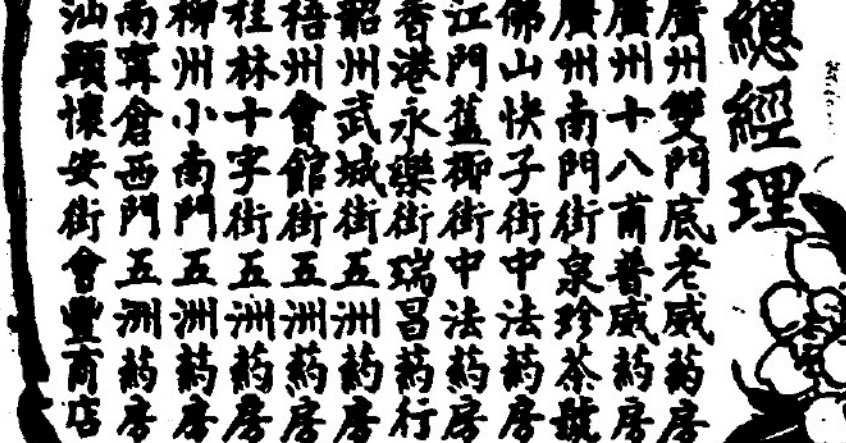 總經理
廣州雙門底老威葯房
廣州十八甫普威葯房
廣州南門街泉珍茶號
佛山快子街中法葯房
江門舊柳街中法葯房
香港永樂街瑞昌葯行
韶州武城街五洲葯房
梧州會館街五洲葯房
桂林十字街五洲葯房
柳州小南門五洲葯房
南寗倉西門五洲葯房
汕頭懷安街會豐商店